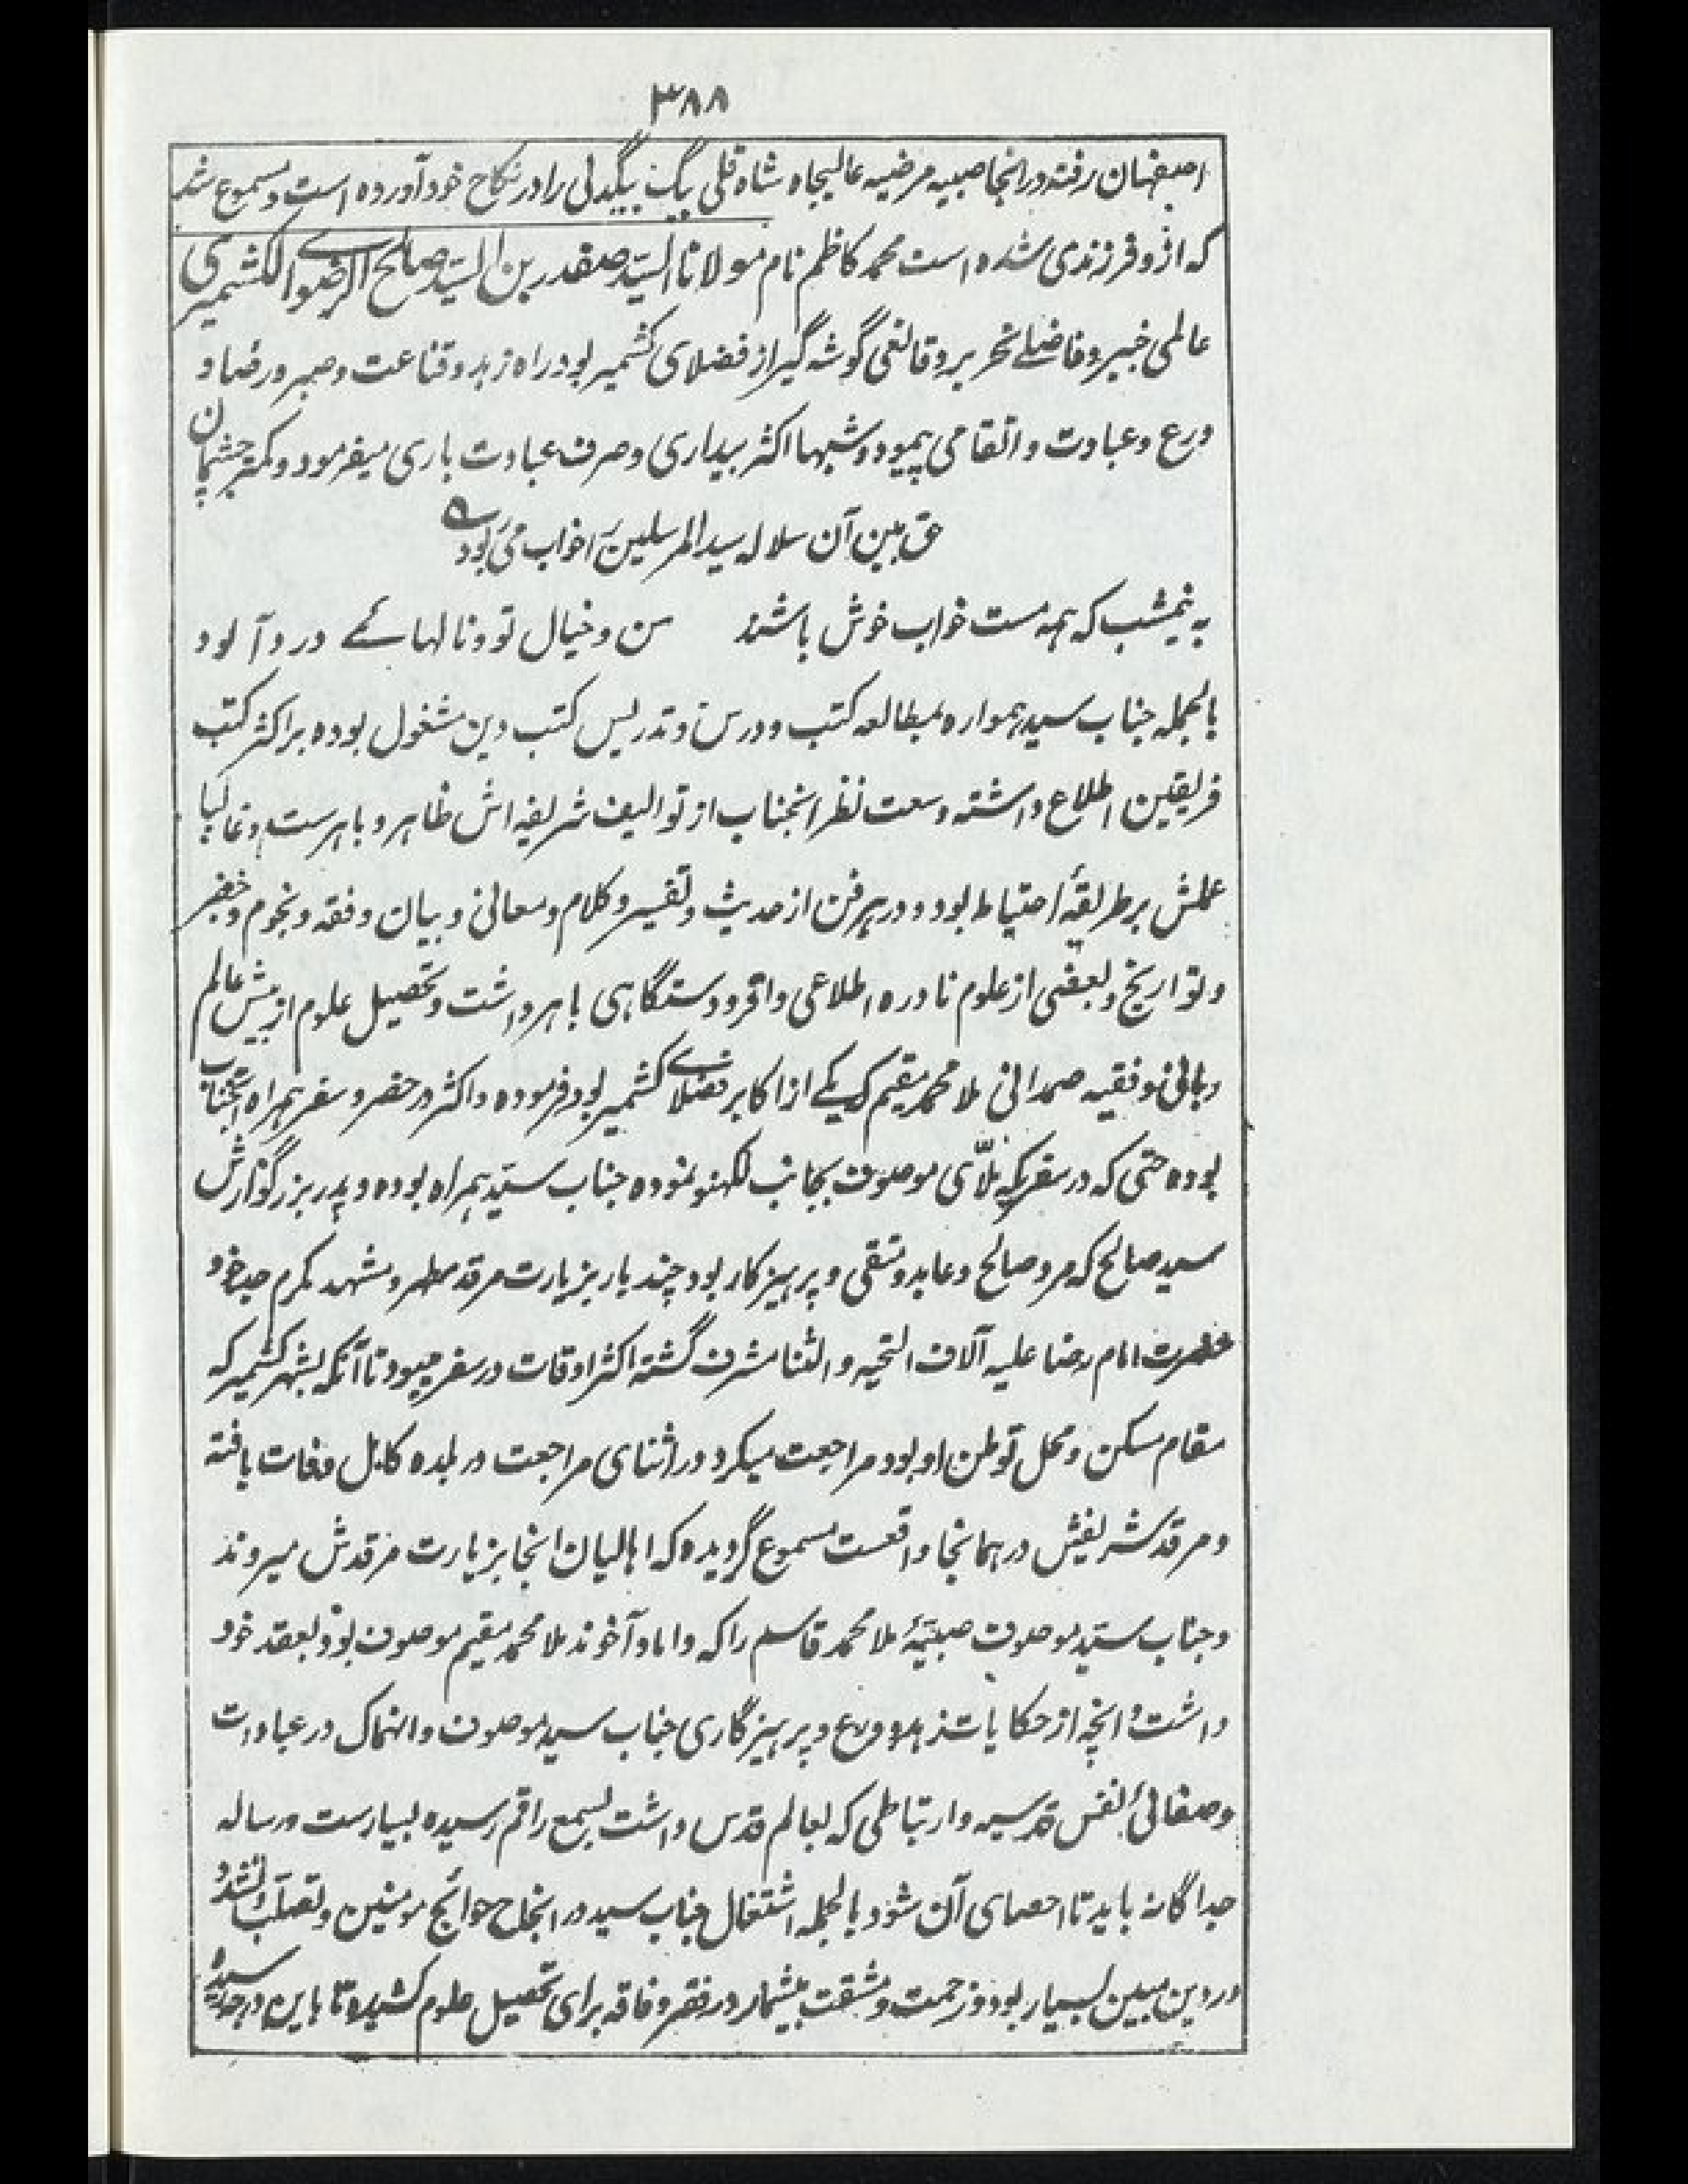 ۳۸۸
اصفهان رفته در انجا صبیه مرضیه عالیجاه شاه قلی بیگ بیگدلی را در نکاح خود آورده است و مسموع شد
که ازو فرزندی شده است محمد کاظم نام مولانا السیّد صفدر بن السیّد صالح الرضوی الکشمیری
عالمی خبیر و فاضلے نحریر و قانعی گوشه گیر از فضلای کشمیر بود راه زهد و قناعت و صبر و رضا و
ورع و عبادت و اتقا می پیمود و شبها اکثر بیداری و صرف عبادت باری میفرمود و کمتر چشمان
حق بین آن سلاله سید المرسلین خواب می بود
به نیمشب که همه مست خواب خوش باشند من و خیال تو و نالهائے درد آلود
بالجمله جناب سید همواره بمطالعه کتب و درس و تدریس کتب دین مشغول بوده بر اکثر کتب
فریقین اطلاع داشته وسعت نظر انجناب از توالیف شریفه اش ظاهر و باهرست و غالبا
عملش بر طریقۂ احتیاط بود و در هر فن از حدیث و تفسیر و کلام و معانی و بیان و فقه و نجوم و جفر
و تواریخ و بعضی از علوم نادره اطلاعی وافر و دستگاهی باهر داشت و تحصیل علوم از پیش عالم
ربانی و فقیه صمدانی ملا محمد مقیم که یکے از اکابر فضلائے کشمیر بود فرموده و اکثر در حضر و سفر همراه انجناب
بوده حتی که در سفریکه ملّای موصوف بجانب لکهنو نموده جناب سیّد همراه بوده و پدر بزرگوارش
سید صالح که مرد صالح و عابد و متقی و پرهیزکار بود چند بار بزیارت مرقد مطهر و مشهد مکرم جد خود
حضرت امام رضا علیه آلاف التحیه و الثنا مشرف گشته اکثر اوقات در سفر میبود تا آنکه بشهر کشمیر که
مقام مسکن و محل توطن او بود مراجعت میکرد در اثنای مراجعت در بلده کابل وفات یافته
و مرقد شریفش در همانجا واقعست مسموع گردیده که اهالیان انجا بزیارت مرقدش میروند
و جناب سیّد موصوف صبیّۂ ملا محمد قاسم را که داماد آخوند ملا محمد مقیم موصوف بود بعقد خود
داشت و انچه از حکایات زهد و ورع و پرهیزگاری جناب سید موصوف و انهماک در عبادات
و صفائی نفس قدسیه و ارتباطی که بعالم قدس داشت بسمع راقم رسیده بسیارست و رساله
جداگانه باید تا احصای آن شود بالجمله اشتغال جناب سید در انجاح حوائج مومنین و تصلب و تشدد
در دین مبین بسیار بود و زحمت و مشقت بیشمار در فقر و فاقه برای تحصیل علوم کشیده تا باین درجه رسیده